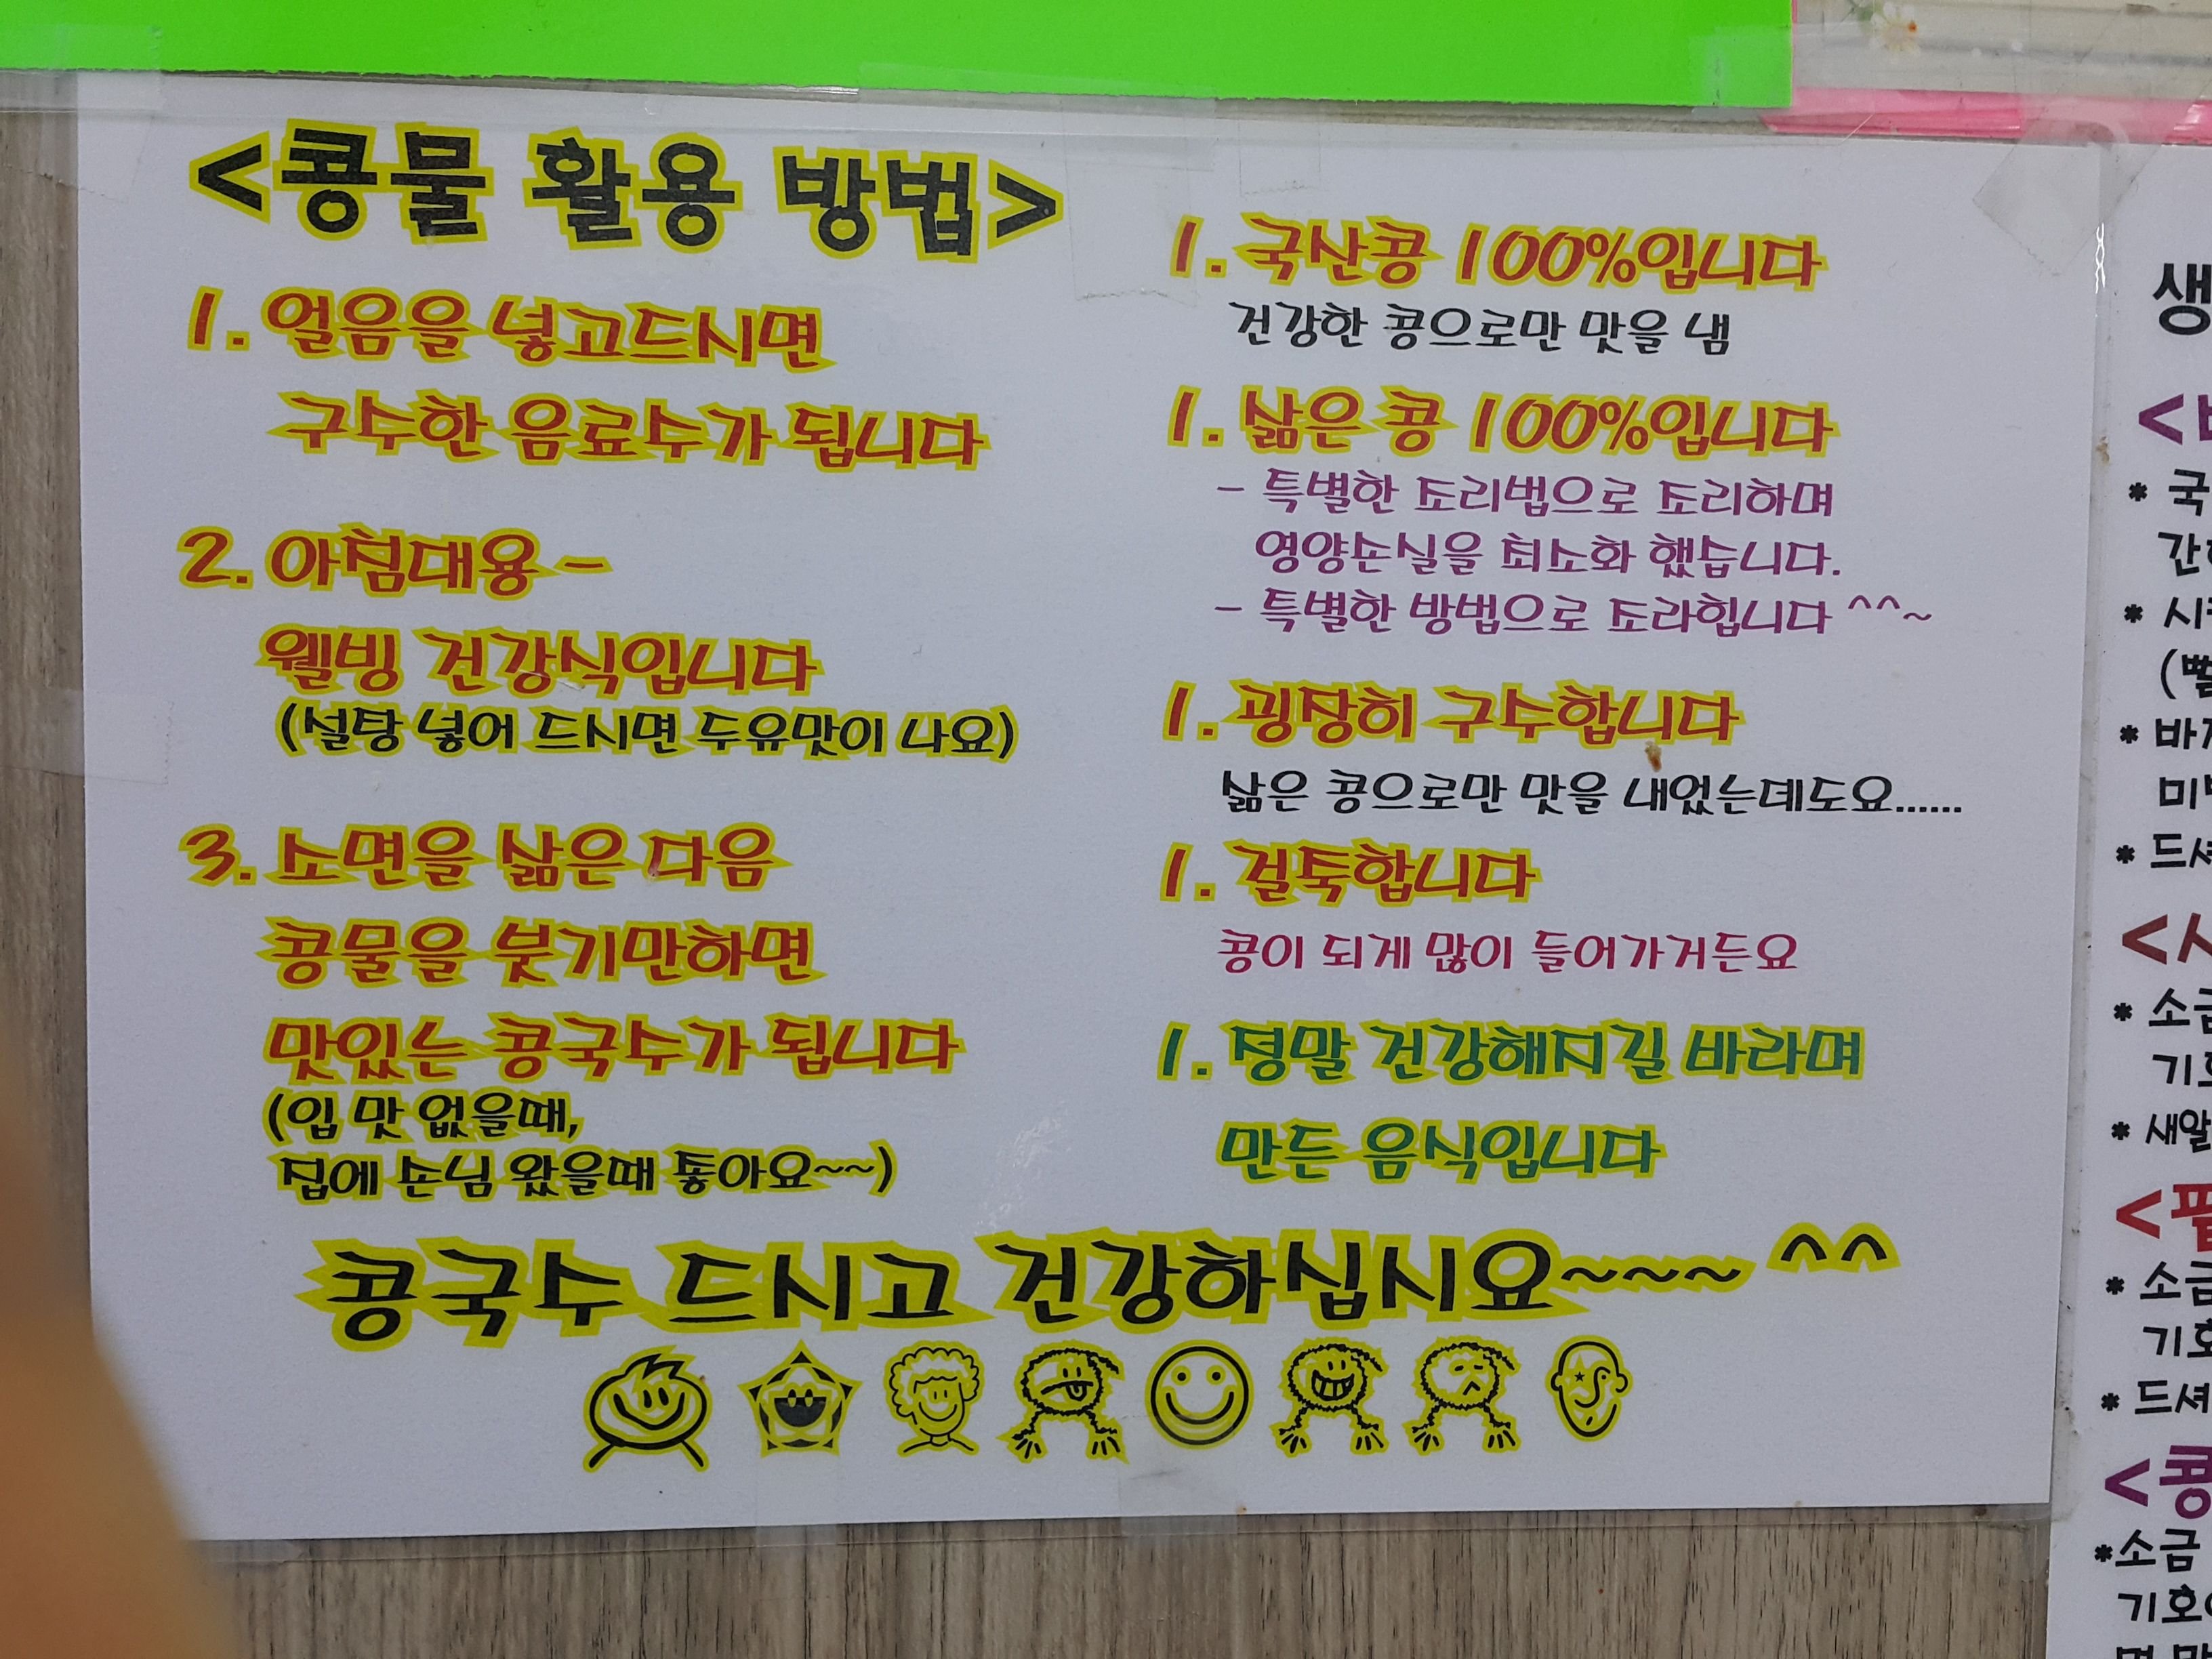 <콩물 활용 방법>
1. 얼음을 넣고드시면
구수한 음료수가 됩니다
2. 아침대용 -
웰빙 건강식입니다
(설탕 넣어 드시면 두유맛이 나요)
3. 소면을 삶은 다음
콩물을 붓기만하면
맛있는 콩국수가 됩니다
(입 맛 없을때,
집에 손님 왔을때 좋아요~~)
1. 국산콩 100%입니다
건강한 콩으로만 맛을 냄
1. 삶은 콩 100%입니다
- 특별한 조리법으로 조리하며
영양손실을 최소화 했습니다.
- 특별한 방법으로 조라힙니다 ^^~
1. 굉장히 구수합니다
삶은 콩으로만 맛을 내었는데도요......
1. 걸쭉합니다
콩이 되게 많이 들어가거든요
1. 정말 건강해지길 바라며
만든 음식입니다
콩국수 드시고 건강하십시요~~~~ ^^
생
* 국
* 드셔
* 소금
기호
* 새알
* 소금
기호
* 드셔
<콩
*소금